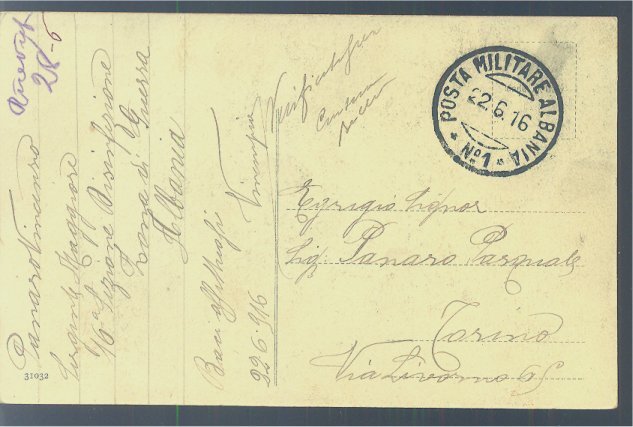 28-6
Panaro
Sergente Maggiore
16a Sezione Disinfezione
Zona di Guerra
Albania
Baci affettuosi
22.6.916
Vincenzino
Verificato per
Censura
POSTA MILITARE ALBANIA
22.6.16
* No 1 *
Egregio Signor
Sig. Panaro Pasquale
Torino
Via Livorno
31032